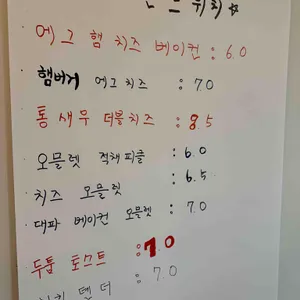 에그 햄 치즈 베이컨 : 6.0
햄버거 에그 치즈 : 7.0
통새우 더블치즈 : 8.5
오믈렛 적채피클 : 6.0
치즈 오믈렛 : 6.5
대파 베이컨 오믈렛 : 7.0
두툼 토스트 : 7.0
: 7.0